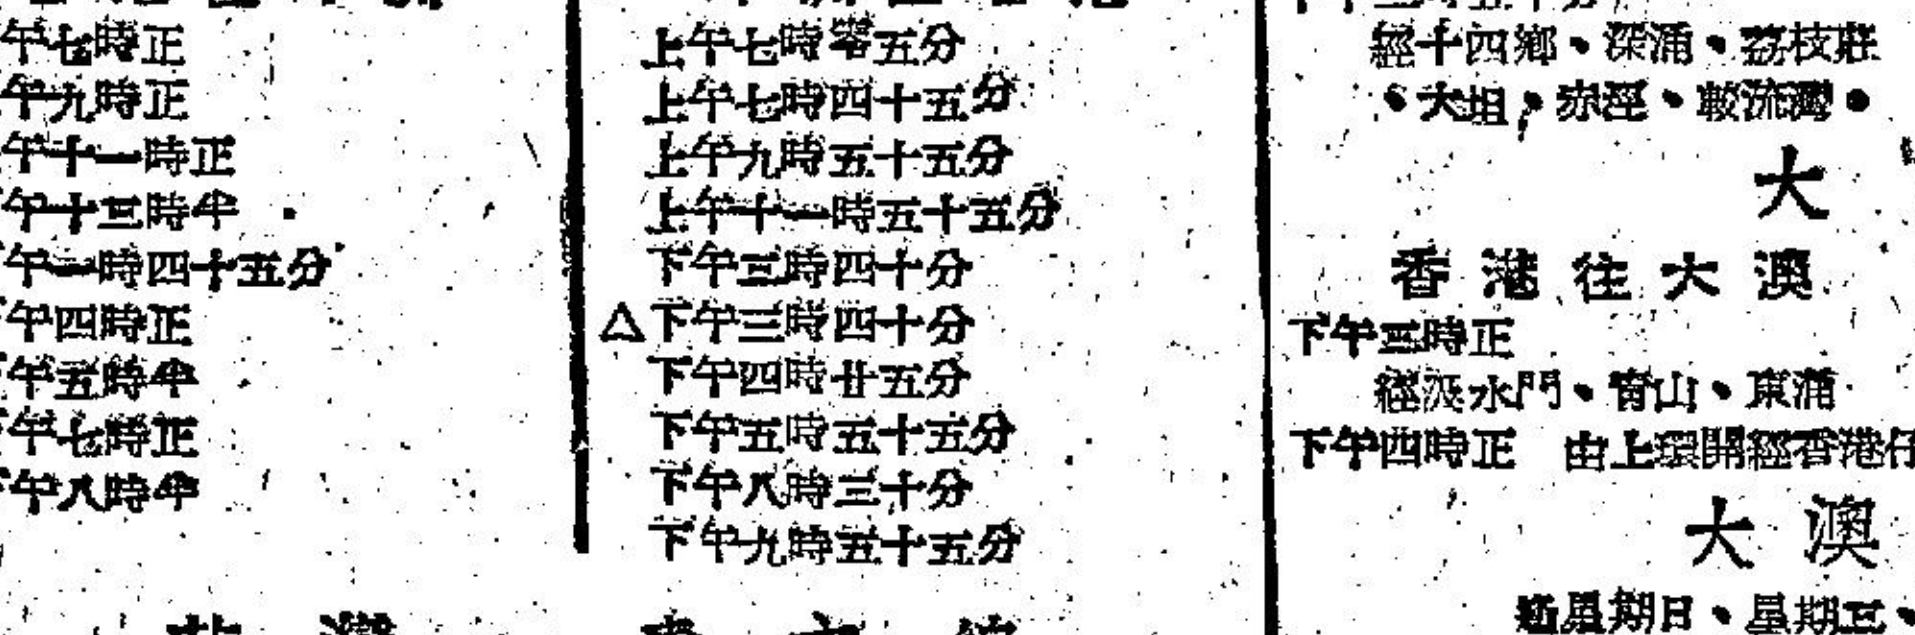 午七時正
午九時正
午十一時正
午十三時半
午一時四十五分
午四時正
午五時半
午七時正
下午八時半
上午七時零五分
上午七時四十五分
上午九時五十五分
上午十一時五十五分
下午三時四十分
△下午三時四十分
下午四時廿五分
下午五時五十五分
下午八時三十分
下午九時五十五分
經十四鄉、深涌、荔枝莊
、大坦、赤涇、較流灣。
大
香港往大澳
下午三時正
經汲水門、青山、東涌
下午四時正 由上環開經香港仔
大澳
逢星期日、星期三、